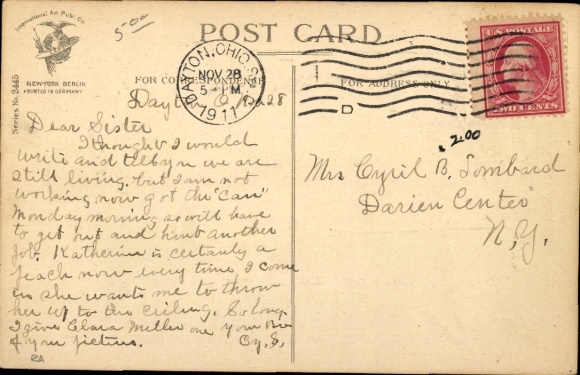 International Art Publ. Co.
NEW YORK BERLIN
PRINTED IN GERMANY
Series No. 2445
5-00
POST CARD
FOR CORRESPONDENCE
FOR ADDRESS ONLY
DAYTON, OHIO.
NOV 28
5-PM
1911
D
U.S. POSTAGE
TWO CENTS
2.00
Dayton O, 28
Dear Sister
I thought I would
write and tell you we are
still living. but I am not
working now got the "Can"
Monday morning so will have
to get out and hunt another
job. Katherine is certanly a
peach now every time I come
in she wants me to throw
her up to the ceiling. So long
I give Clara Miller one your
of your pictures. Cy. S.
RA
Mrs Cyril B. Lombard
Darien Center
N.Y.